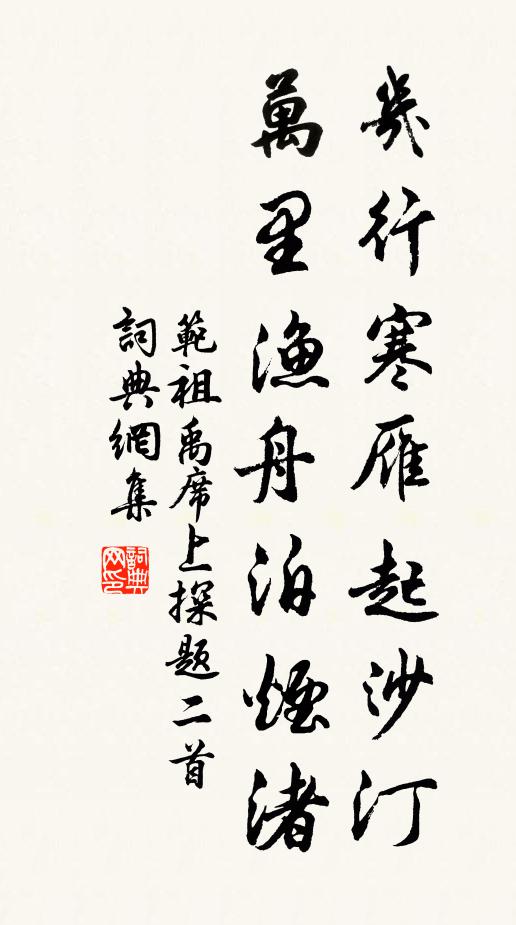 幾行寒雁起沙汀
萬里漁舟泊煙渚
範祖禹席上探題二首
詞典網集
詞典網印